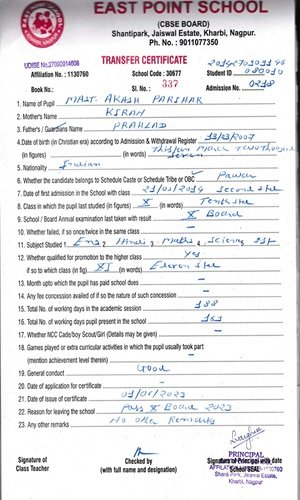 EAST POINT SCHOOL
(CBSE BOARD)
Shantipark, Jaiswal Estate, Kharbi, Nagpur.
Ph. No. : 9011077350
UDISE No.27090914606
TRANSFER CERTIFICATE
Affiliation No. : 1130760 School Code : 30677 Student ID 080010
Book No.: Sl. No. : 337 Admission No.: 0218
1. Name of Pupil MAST. AKASH PARIHAR
2. Mother's Name KIRAN
3. Father's / Guardians Name PRAHLAD
4. Date of birth (in Christian era) according to Admission & Withdrawal Register 13/03/2007
(in figures) (in words) Thirteen March Two Thousand Seven
5. Nationality Indian
6. Whether the candidate belongs to Schedule Caste or Schedule Tribe or OBC
7. Date of first admission in the School with class 21/01/2014 Second std
8. Class in which the pupil last studied (in figures) X (in words) Tenth std
9. School / Board Annual examination last taken with result X Board
10. Whether failed, if so once/twice in the same class -
11. Subject Studied 1 Eng 2. Hindi 3. Maths 4. Science SST
12. Whether qualified for promotion to the higher class Yes
if so to which class (in fig) XI (in words) Eleven std
13. Month upto which the pupil has paid school dues -
14. Any fee concession availed of if so the nature of such concession -
15. Total No. of working days in the academic session 188
16. Total No. of working days pupil present in the school 161
17. Whether NCC Cade/boy Scout/Girl (Details may be given) -
18. Games played or extra curricular activities in which the pupil usually took part
(mention achievement level therein) -
19. General conduct Good
20. Date of application for certificate -
21. Date of issue of certificate 01/06/2023
22. Reason for leaving the school Pass X Board 2023
23. Any other remarks No other Remarks
Signature of Class Teacher
Checked by (with full name and designation)
PRINCIPAL
Signature of Principal with date
School SEAL
Shanti Park, Jaiswal Estate,
Kharbi, Nagpur